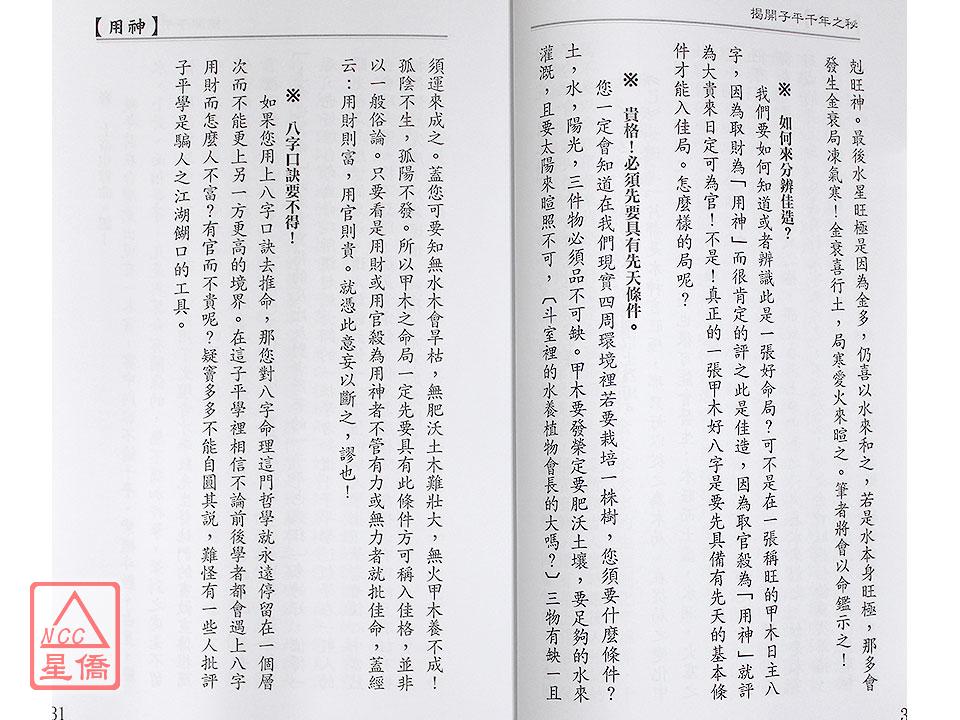 揭開子平千年之秘
剋旺神。最後水星旺極是因為金多，仍喜以水來和之，若是水本身旺極，那多會
發生金衰局凍氣寒！金衰喜行土，局寒愛火來暄之。筆者將會以命鑑示之！
※　如何來分辨佳造？
我們要如何知道或者辨識此是一張好命局？可不是在一張稱旺的甲木日主八
字，因為取財為「用神」而很肯定的評之此是佳造，因為取官殺為「用神」就評
為大貴來日定可為官！不是！真正的一張甲木好八字是要先具備有先天的基本條
件才能入佳局。怎麼樣的局呢？
※　貴格！必須先要具有先天條件。
您一定會知道在我們現實四周環境裡若要栽培一株樹，您須要什麼條件？
土，水，陽光，三件物必須品不可缺。甲木要發榮定要肥沃土壤，要足夠的水來
灌溉，且要太陽來暄照不可，〔斗室裡的水養植物會長的大嗎？〕三物有缺一且
3
【用神】
須運來成之。蓋您可要知無水木會旱枯，無肥沃土木難壯大，無火甲木養不成！
孤陰不生，孤陽不發。所以甲木之命局一定先要具有此條件方可稱入佳格，並非
以一般俗論。只要看是用財或用官殺為用神者不管有力或無力者就批佳命，蓋經
云：用財則富，用官則貴。就憑此意妄以斷之，謬也！
※　八字口訣要不得！
如果您用上八字口訣去推命，那您對八字命理這門哲學就永遠停留在一個層
次而不能更上另一方更高的境界。在這子平學裡相信不論前後學者都會遇上八字
用財而怎麼人不富？有官而不貴呢？疑竇多多不能自圓其說，難怪有一些人批評
子平學是騙人之江湖餬口的工具。
31
NCC
星僑